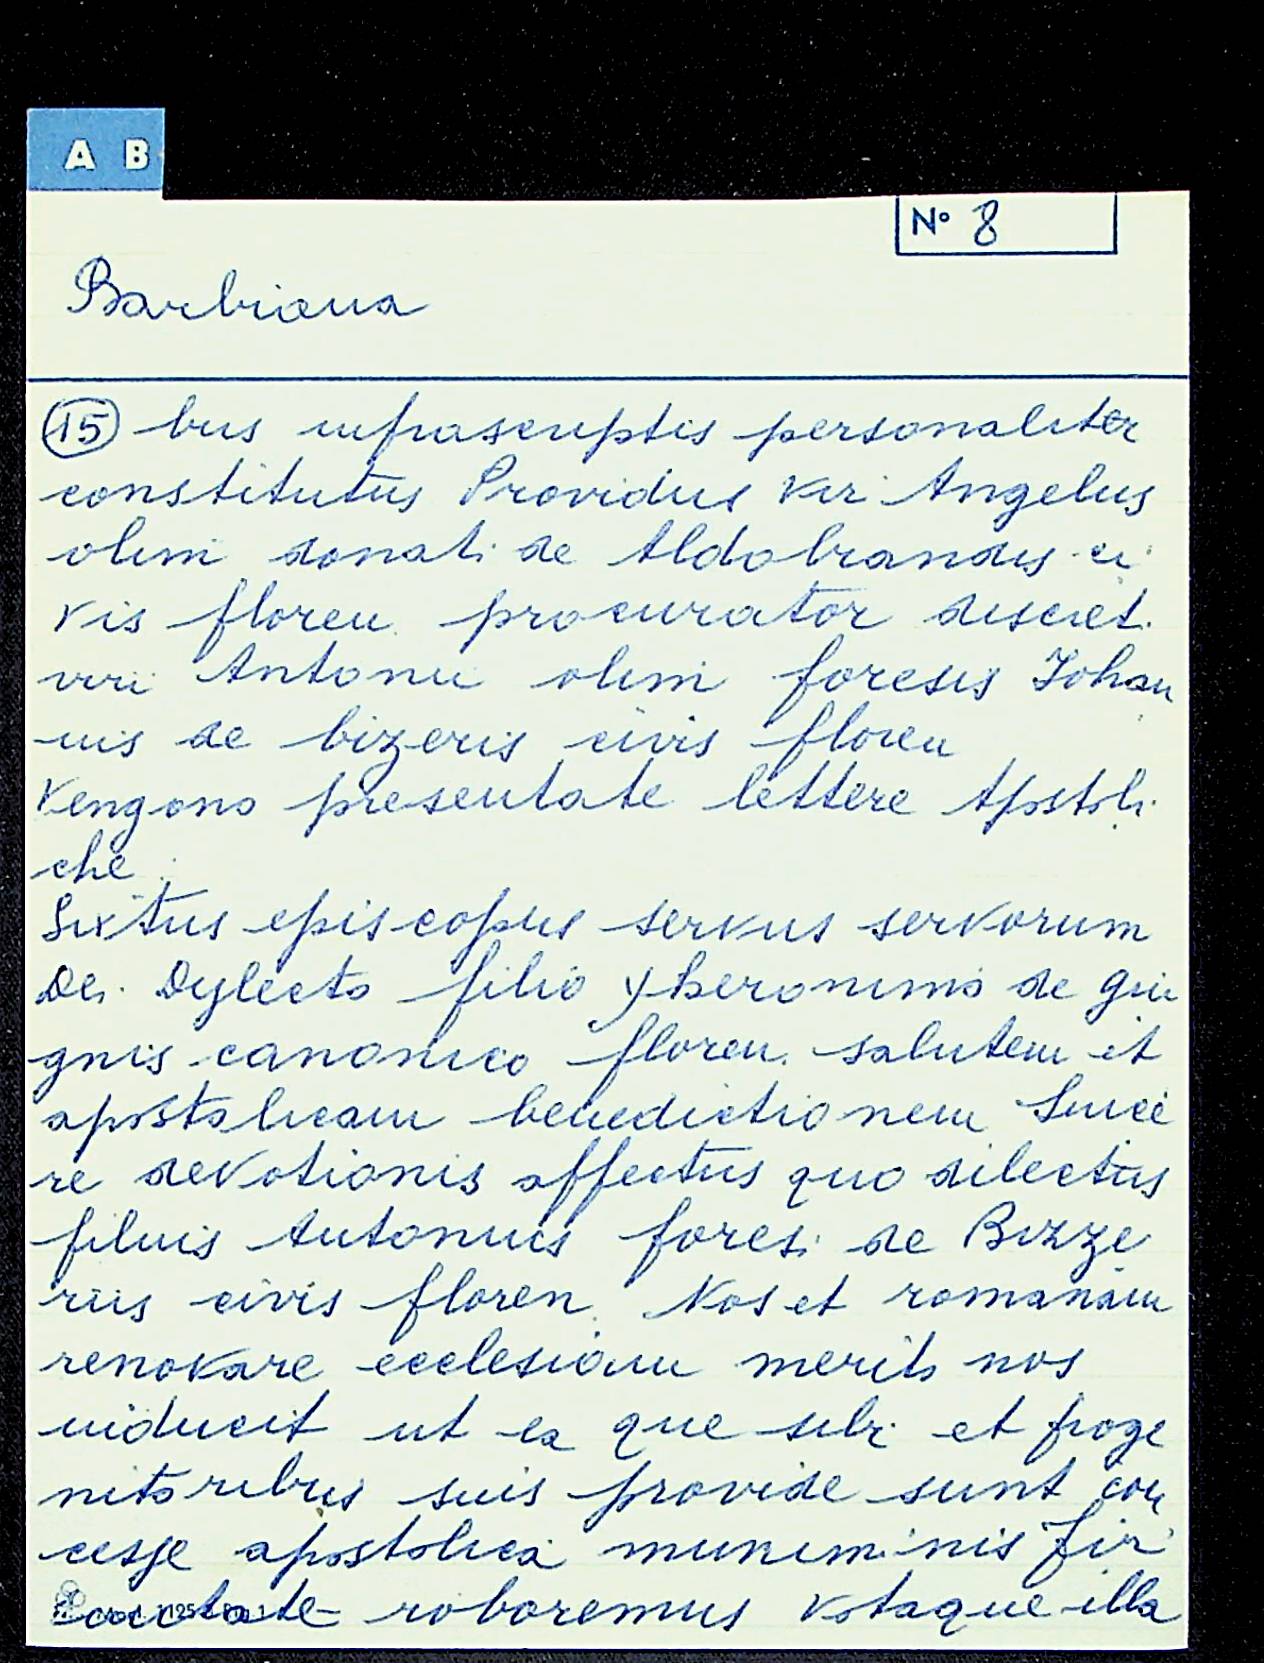 A B
Nº 8
Barbiana
15 bus infrascriptis personaliter
constitutus Providus Vir Angelus
olim donati de Aldobrandis ci
vis floren. procurator discret.
viri Antonii olim foresis Johan
nis de bizeris civis floren
Vengono presentate lettere Apostoli
che.
Sixtus episcopus servus servorum
Dei. Dylecto filio Yheronimo de giu
gnis canonico floren. salutem et
apostolicam benedictionem Since
re devotionis affectus quo dilectus
filius Antonius foresi de Bizze
riis civis floren. Nos et romanam
renovare ecclesiam merito nos
inducit ut ea que sibi et proge
nitoribus suis provide sunt con
cesse apostolica muniminis fir
roboremus votaque illa